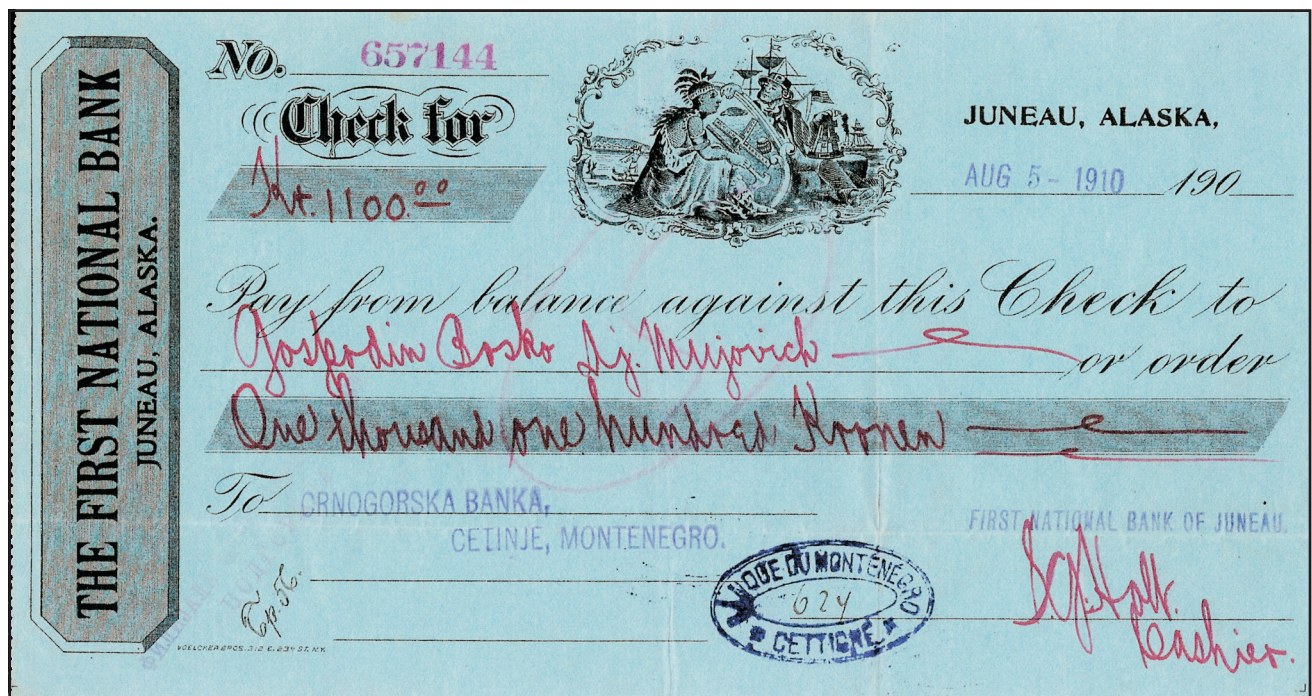 THE FIRST NATIONAL BANK
JUNEAU, ALASKA.
No. 657144
Check for
Kr. 1100.00
JUNEAU, ALASKA,
AUG 5 - 1910 190
Pay from balance against this Check to
Gospodin Bosko Dj. Mujovich or order
One thousand one hundred Kronen
To CRNOGORSKA BANKA,
CETINJE, MONTENEGRO.
FIRST NATIONAL BANK OF JUNEAU.
Cashier.
QUE DU MONTÉNÉGRO
624
CETTIGNÉ
VOELCKER BROS. 312 E. 23RD ST. N.Y.